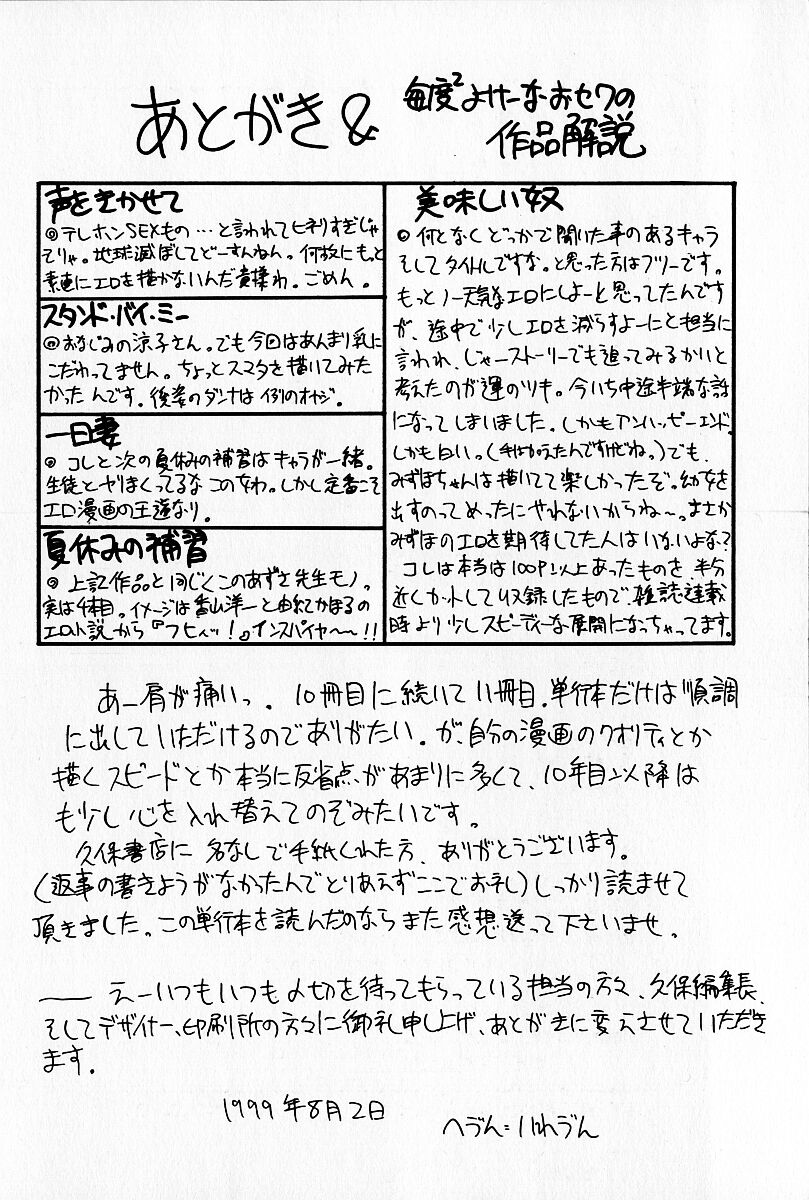 あとがき&
毎度²よけーなおセワの
作品解説
声をきかせて
◎テレホンSEXもの…と言われてヒネりすぎじゃ
そりゃ。地球滅ぼしてどーすんねん。何故にもっと
素直にエロを描かないんだ貴様わ。ごめん。
スタンド・バイ・ミー
◎おなじみの涼子さん。でも今回はあんまり乳に
こだわってません。ちょっとスマタを描いてみた
かったんです。後姿のダンナは例のオヤジ。
一日妻
◎コレと次の夏休みの補習はキャラが一緒。
生徒とやりまくってるなこの女わ。しかし定番こそ
エロ漫画の王道なり。
夏休みの補習
◎上記作品と同じくこのあずさ先生モノ。
実は4本目。イメージは香山洋一と由紀かほるの
エロ小説から『フヒィッ!』インスパイヤ〜〜!!
美味しい奴
◎何となくどっかで聞いた事のあるキャラ
そしてタイトルですな。と思った方はフツーです。
もっとノー天気なエロにしよーと思ってたんです
が、途中で少しエロを減らすよーにと担当に
言われ、じゃーストーリーでも追ってみるかいと
考えたのが運のツキ。今いち中途半端な話
になってしまいました。しかもアンハッピーエンド。
しかも白い。(手はかえたんですけどね。)でも、
みずほちゃんは描いてて楽しかったぞ。幼女を
出すのってめったにやれないからね〜。まさか
みずほのエロを期待してた人はいないよな?
コレは本当は100P以上あったものを半分
近くカットして収録したもので、雑誌連載
時より少しスピーディーな展開になっちゃってます。
あー肩が痛いっ。10冊目に続いて11冊目。単行本だけは順調
に出していただけるのでありがたい。が、自分の漫画のクオリティとか
描くスピードとか本当に反省点があまりに多くて、10年目以降は
も少し心を入れ替えてのぞみたいです。
久保書店に名なしで手紙くれた方、ありがとうございます。
(返事の書きようがなかったんでとりあえずここでお礼)しっかり読ませて
頂きました。この単行本を読んだのならまた感想送って下さいませ。
―― えーいつもいつも〆切を待ってもらっている担当の方々、久保編集長、
そしてデザイナー、印刷所の方々に御礼申し上げ、あとがきに変えさせていただき
ます。
1999年8月2日
へづん=はれづん